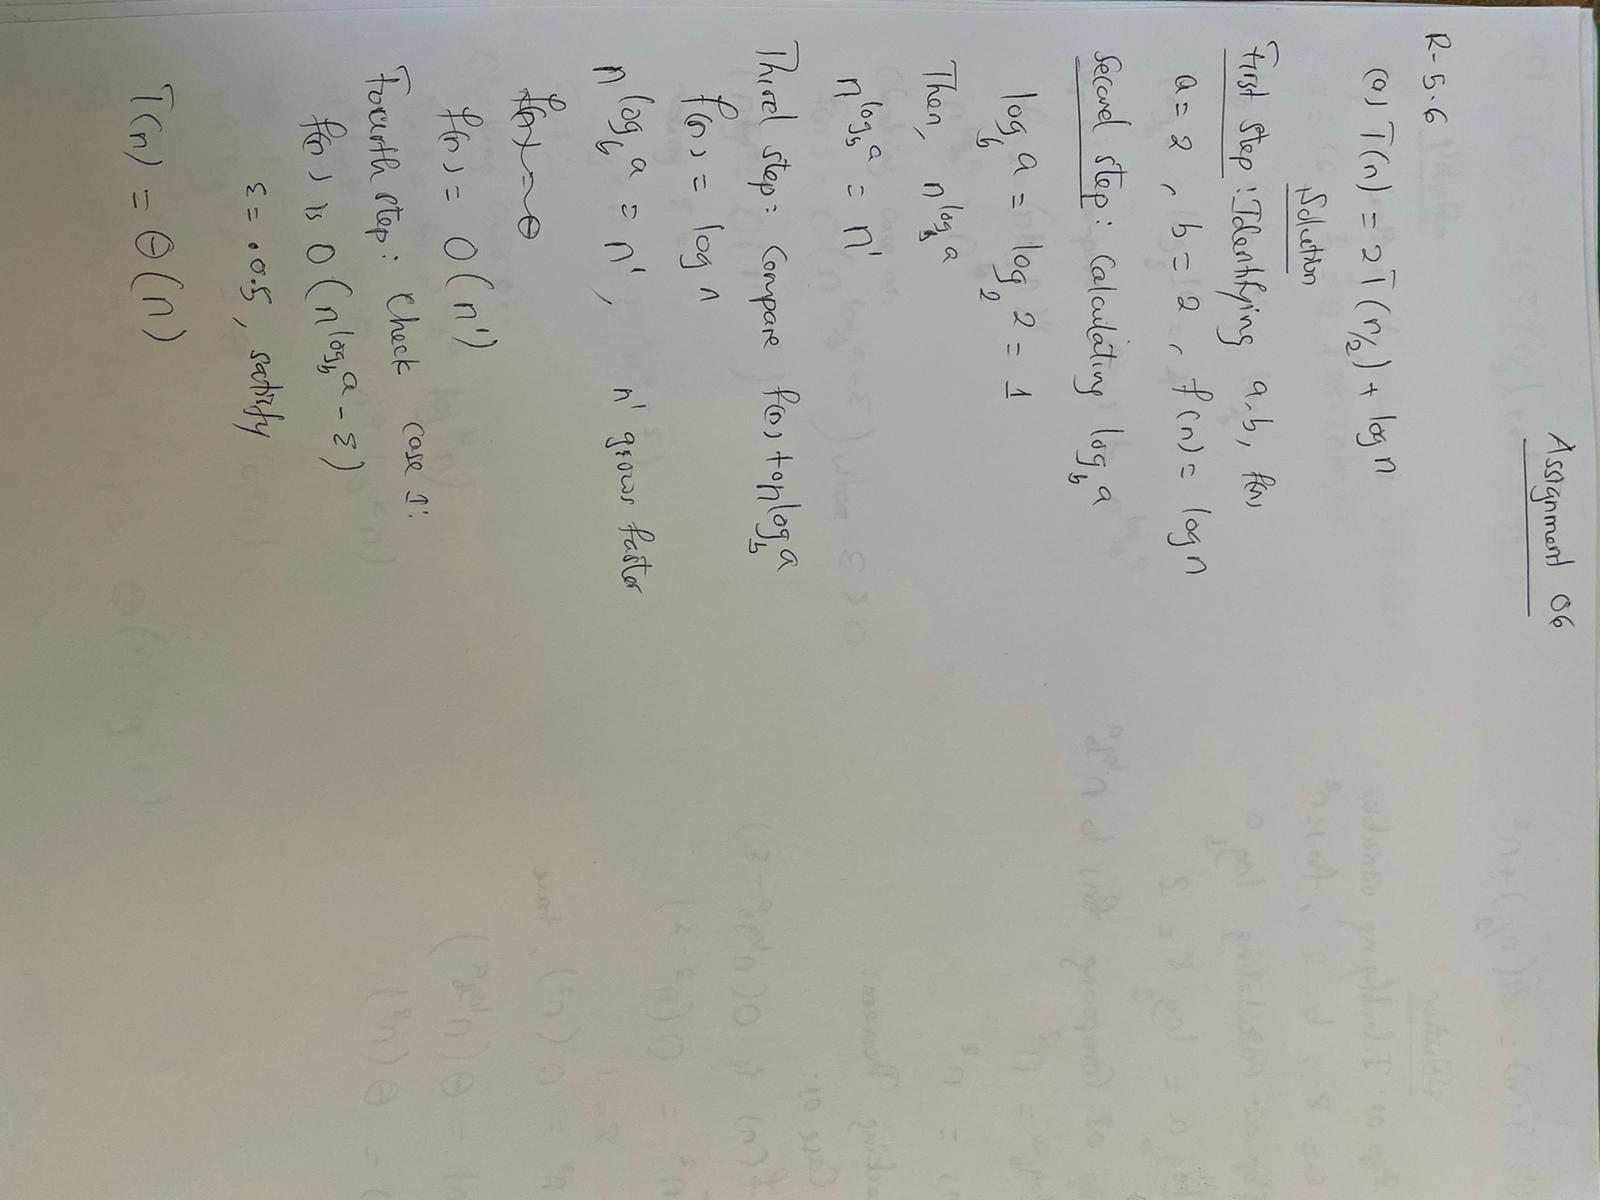 Assignment 06
R-5.6
(a) T(n) = 2T(n/2) + log n
Solution
First step: Identifying a, b, f(n)
a = 2, b = 2, f(n) = log n
Second step: Calculating log_b a
log_b a = log_2 2 = 1
Then, n^{log_b a}
n^{log_b a} = n^1
Third step: Compare f(n) to n^{log_b a}
f(n) = log n
n^{log_b a} = n^1, n^1 grows faster
f(n) = Θ
f(n) = O(n^1)
Fourth step: Check case 1:
f(n) is O(n^{log_b a - ε})
ε = .0.5, satisfy
T(n) = Θ(n)